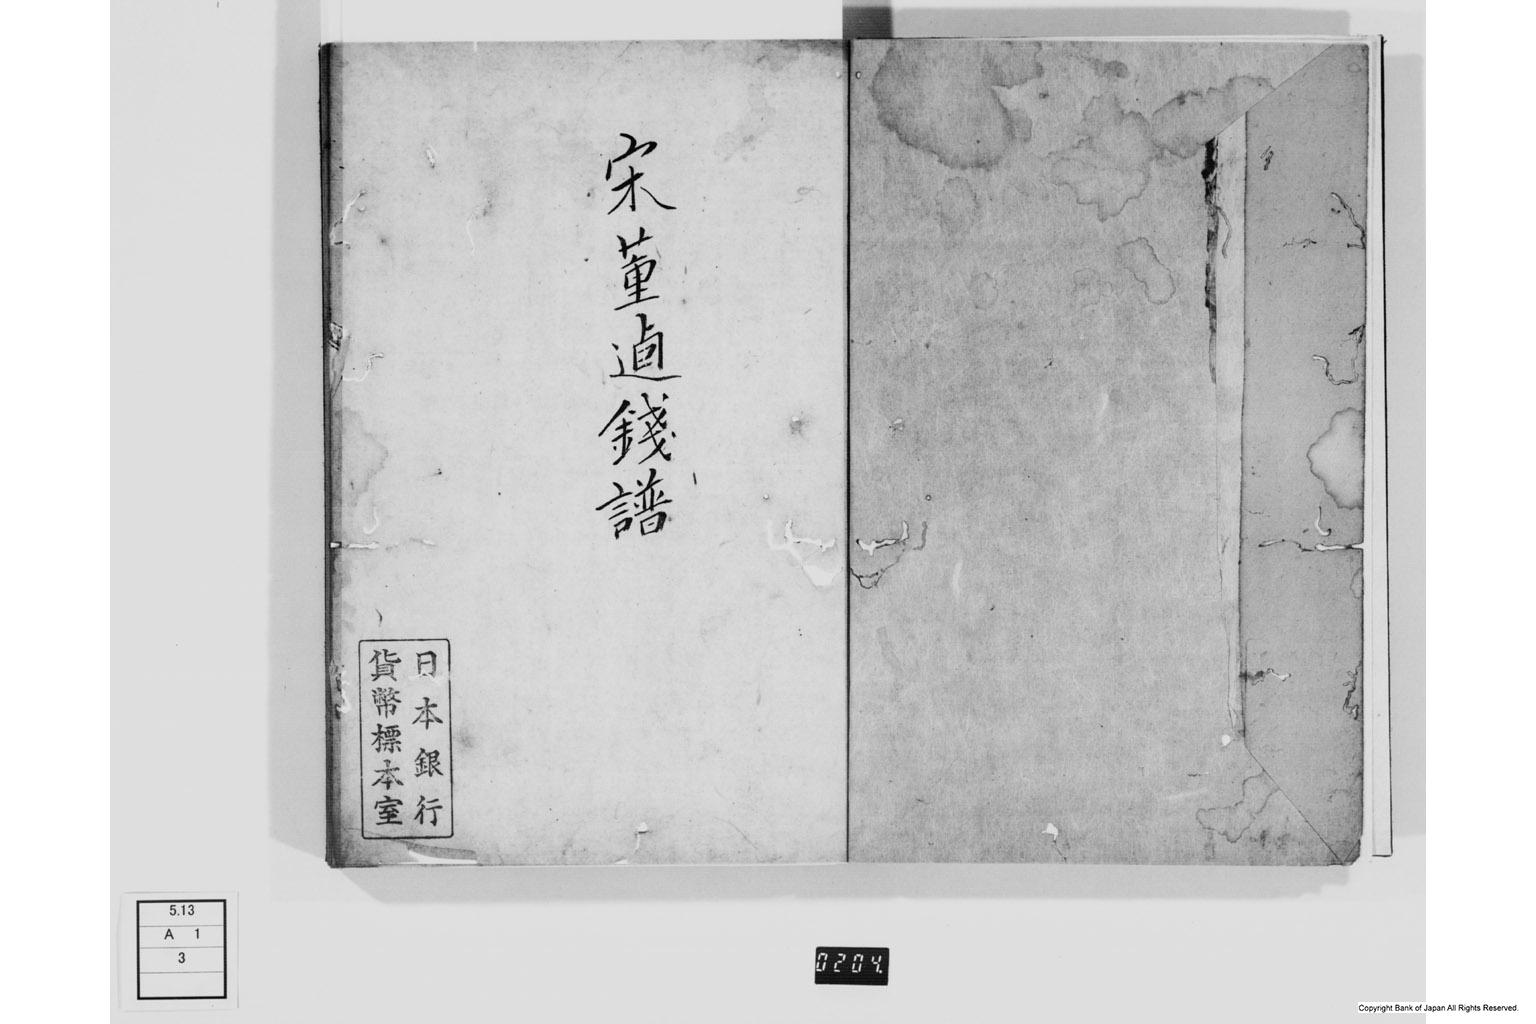 宋董逌錢譜
日本銀行
貨幣標本室
5.13
A 1
3
0204.
Copyright Bank of Japan All Rights Reserved.